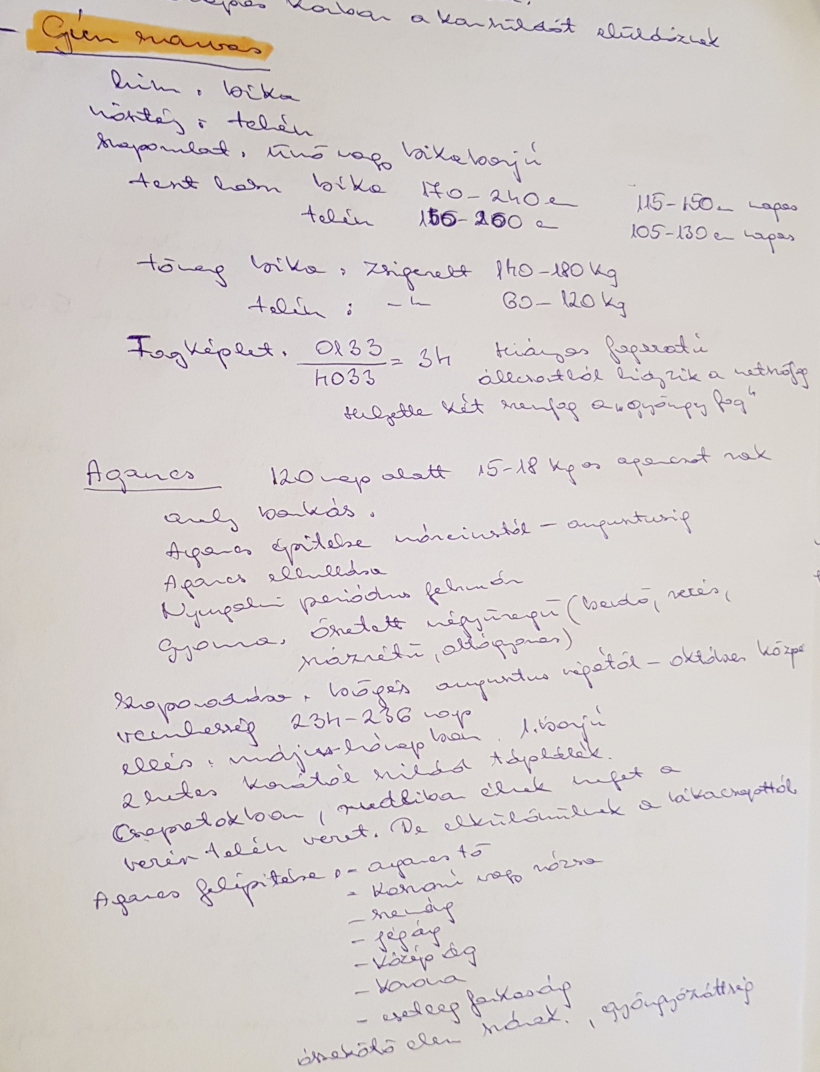 korban a kansüldőt elüldözik
- Gím szarvas
hím: bika
nőstény: tehén
szaporulat: ünő vagy bikaborjú
test hossz bika 170-240 cm 115-150 cm magas
tehén 150-200 cm 105-130 cm magas
tömeg bika: zsigerelt 140-180 kg
tehén: -"- 60-120 kg
Fogképlet: 0133/4033 = 34 hiányos fogsorú
állcsontból hiányzik a metszőfog
helyette két szemfog a "gyöngy fog"
Agancs 120 nap alatt 15-18 kg os agancsot rak
amely barkás.
Agancs építése márciustól - augusztusig
Agancs elhullása
Nyugalmi periódus február
Gyomra: összetett négyüregű (bendő, recés,
százrétű, oltógyomor)
Szaporodása: bőgés augusztus végétől - október közepe
vemhesség 234-236 nap
ellés: május hónapban 1. borjú
2 hetes korától szilád táplálék.
Csapatokban, rudliba élnek
vezér tehén vezet. De elkülönülnek a bikacsapattól
Agancs felépítése: - agancs tő
- koszorú vagy rózsa
- szemág
- jégág
- közép ág
- korona
- esetleg farkaság
összekötő elem szárak, gyöngyözöttség